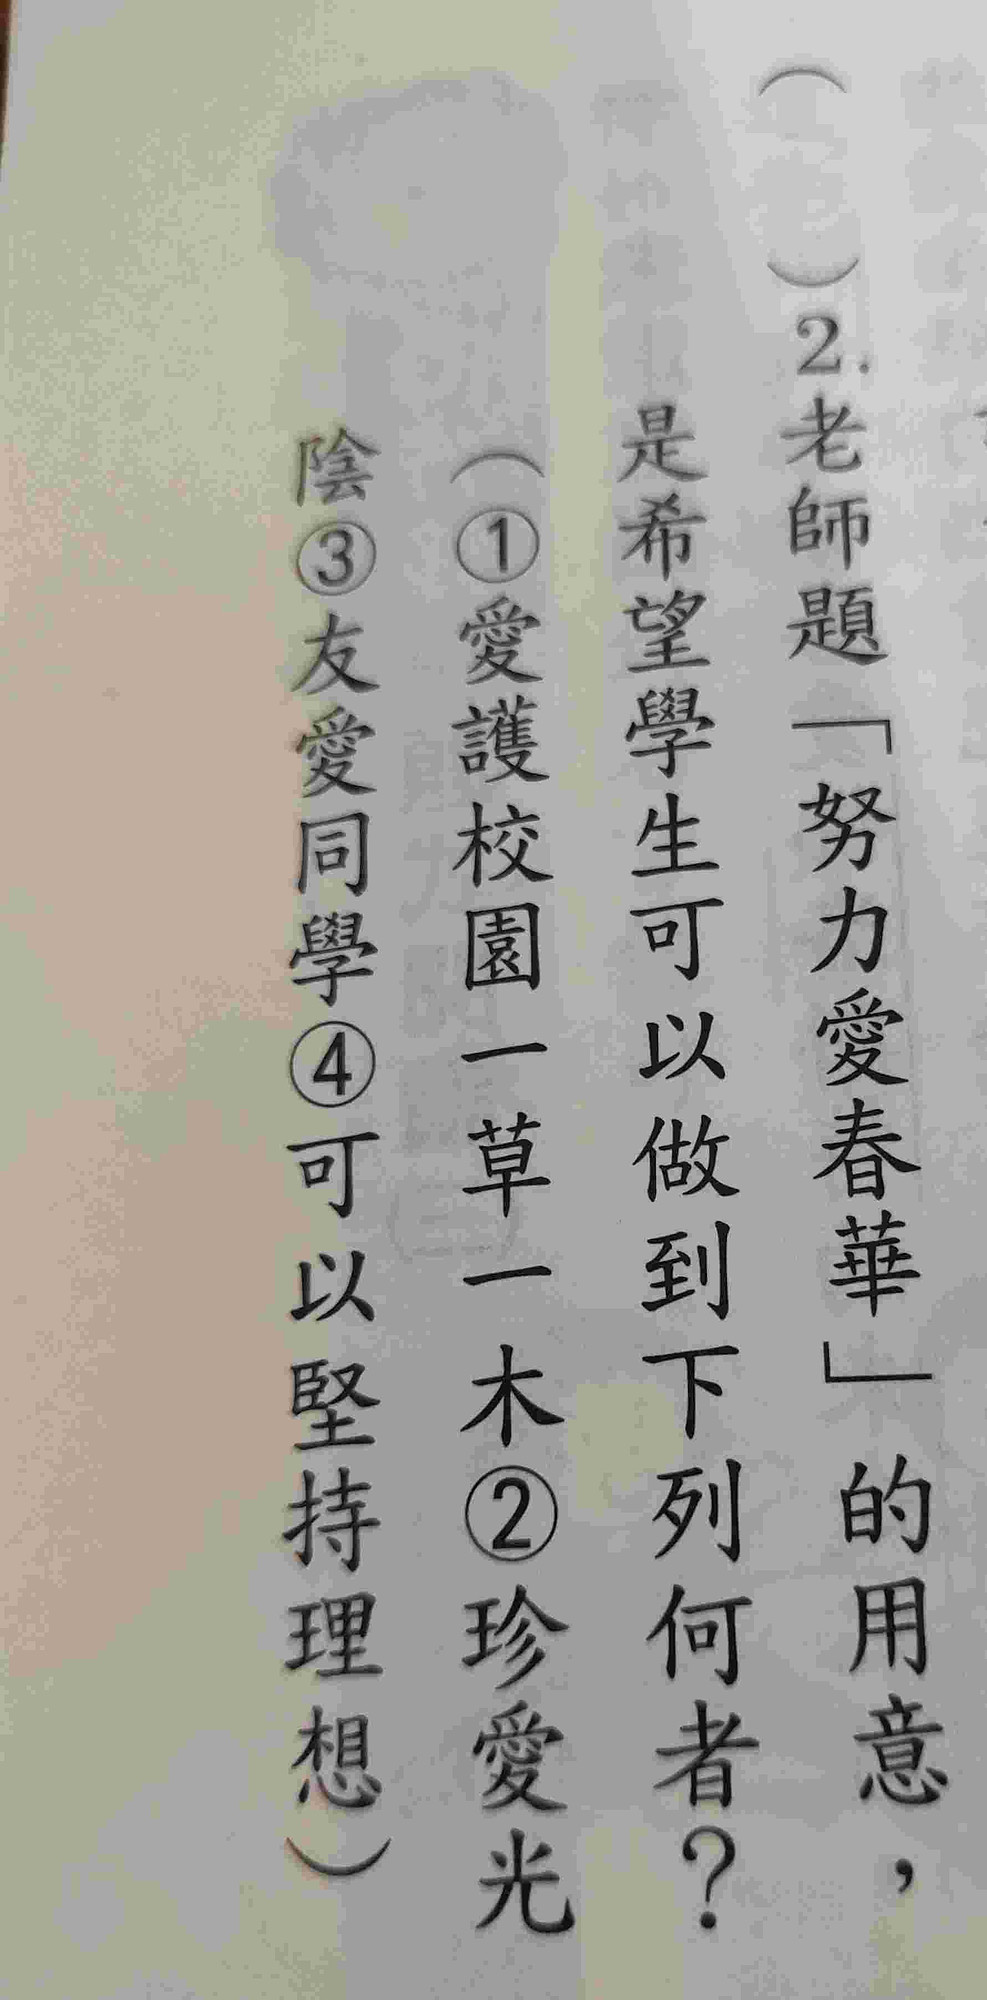 （　）2.老師題「努力愛春華」的用意，
是希望學生可以做到下列何者？
（①愛護校園一草一木②珍愛光
陰③友愛同學④可以堅持理想）